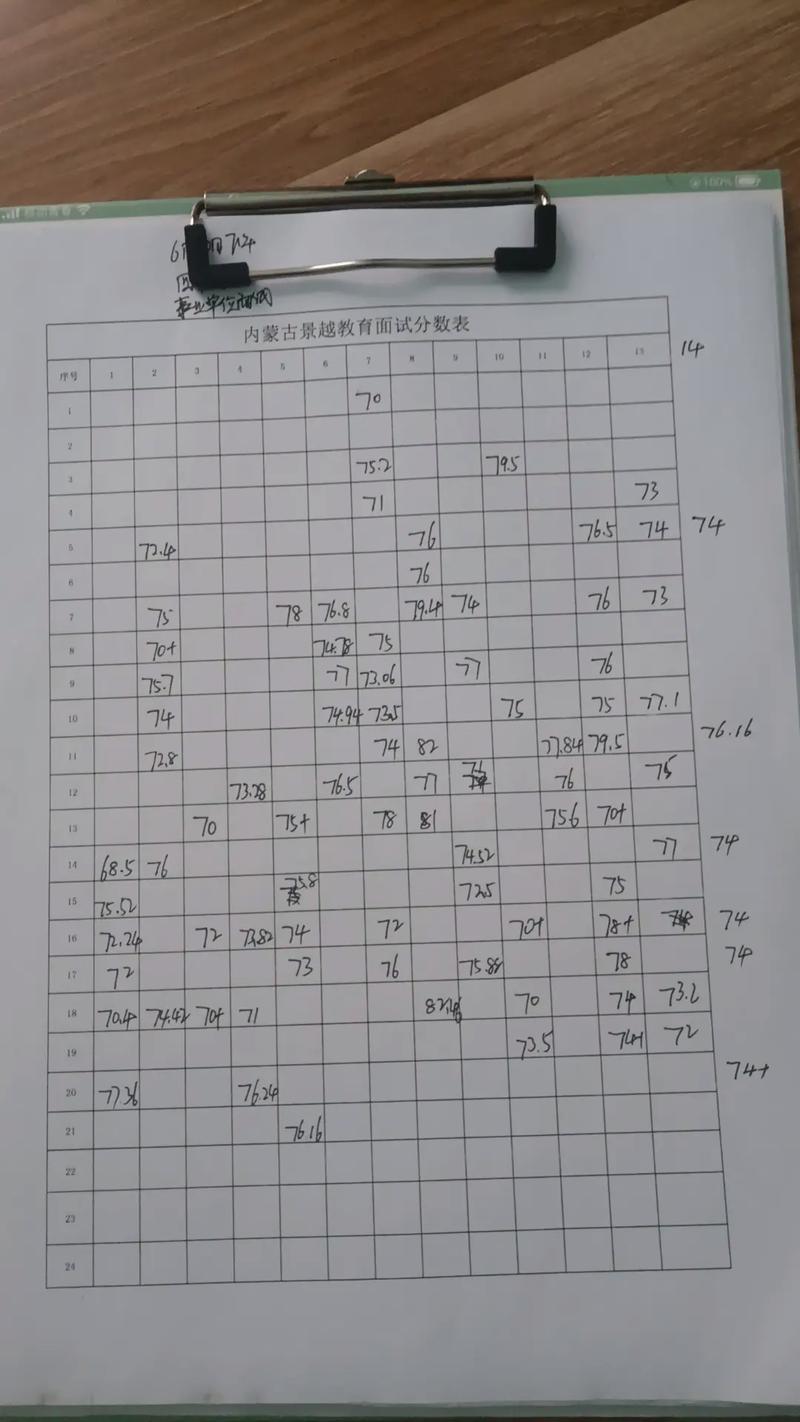 100%
事业单位面试
内蒙古景越教育面试分数表
序号 1 2 3 4 5 6 7 8 9 10 11 12 13 14
1 70
2
3 75.2 79.5
4 71 73
5 72.4 76 76.5 74 74
6 76
7 75 78 76.8 79.4 74 76 73
8 70+ 74.78 75
9 75.7 77 73.06 77 76
10 74 74.94 73.5 75 75 77.1
11 72.8 74 82 77.84 79.5 76.16
12 73.28 76.5 77 76 75
13 70 75+ 78 81 75.6 70+
14 68.5 76 74.52 77 74
15 75.52 75.8 72.5 75
16 72.24 72 73.82 74 72 70+ 78+ 74
17 72 73 76 75.88 78 74
18 70.4 74.42 70+ 71 70 74 73.2
19 73.5 74+ 72
74+
20 77.36 76.24
21 76.16
22
23
24